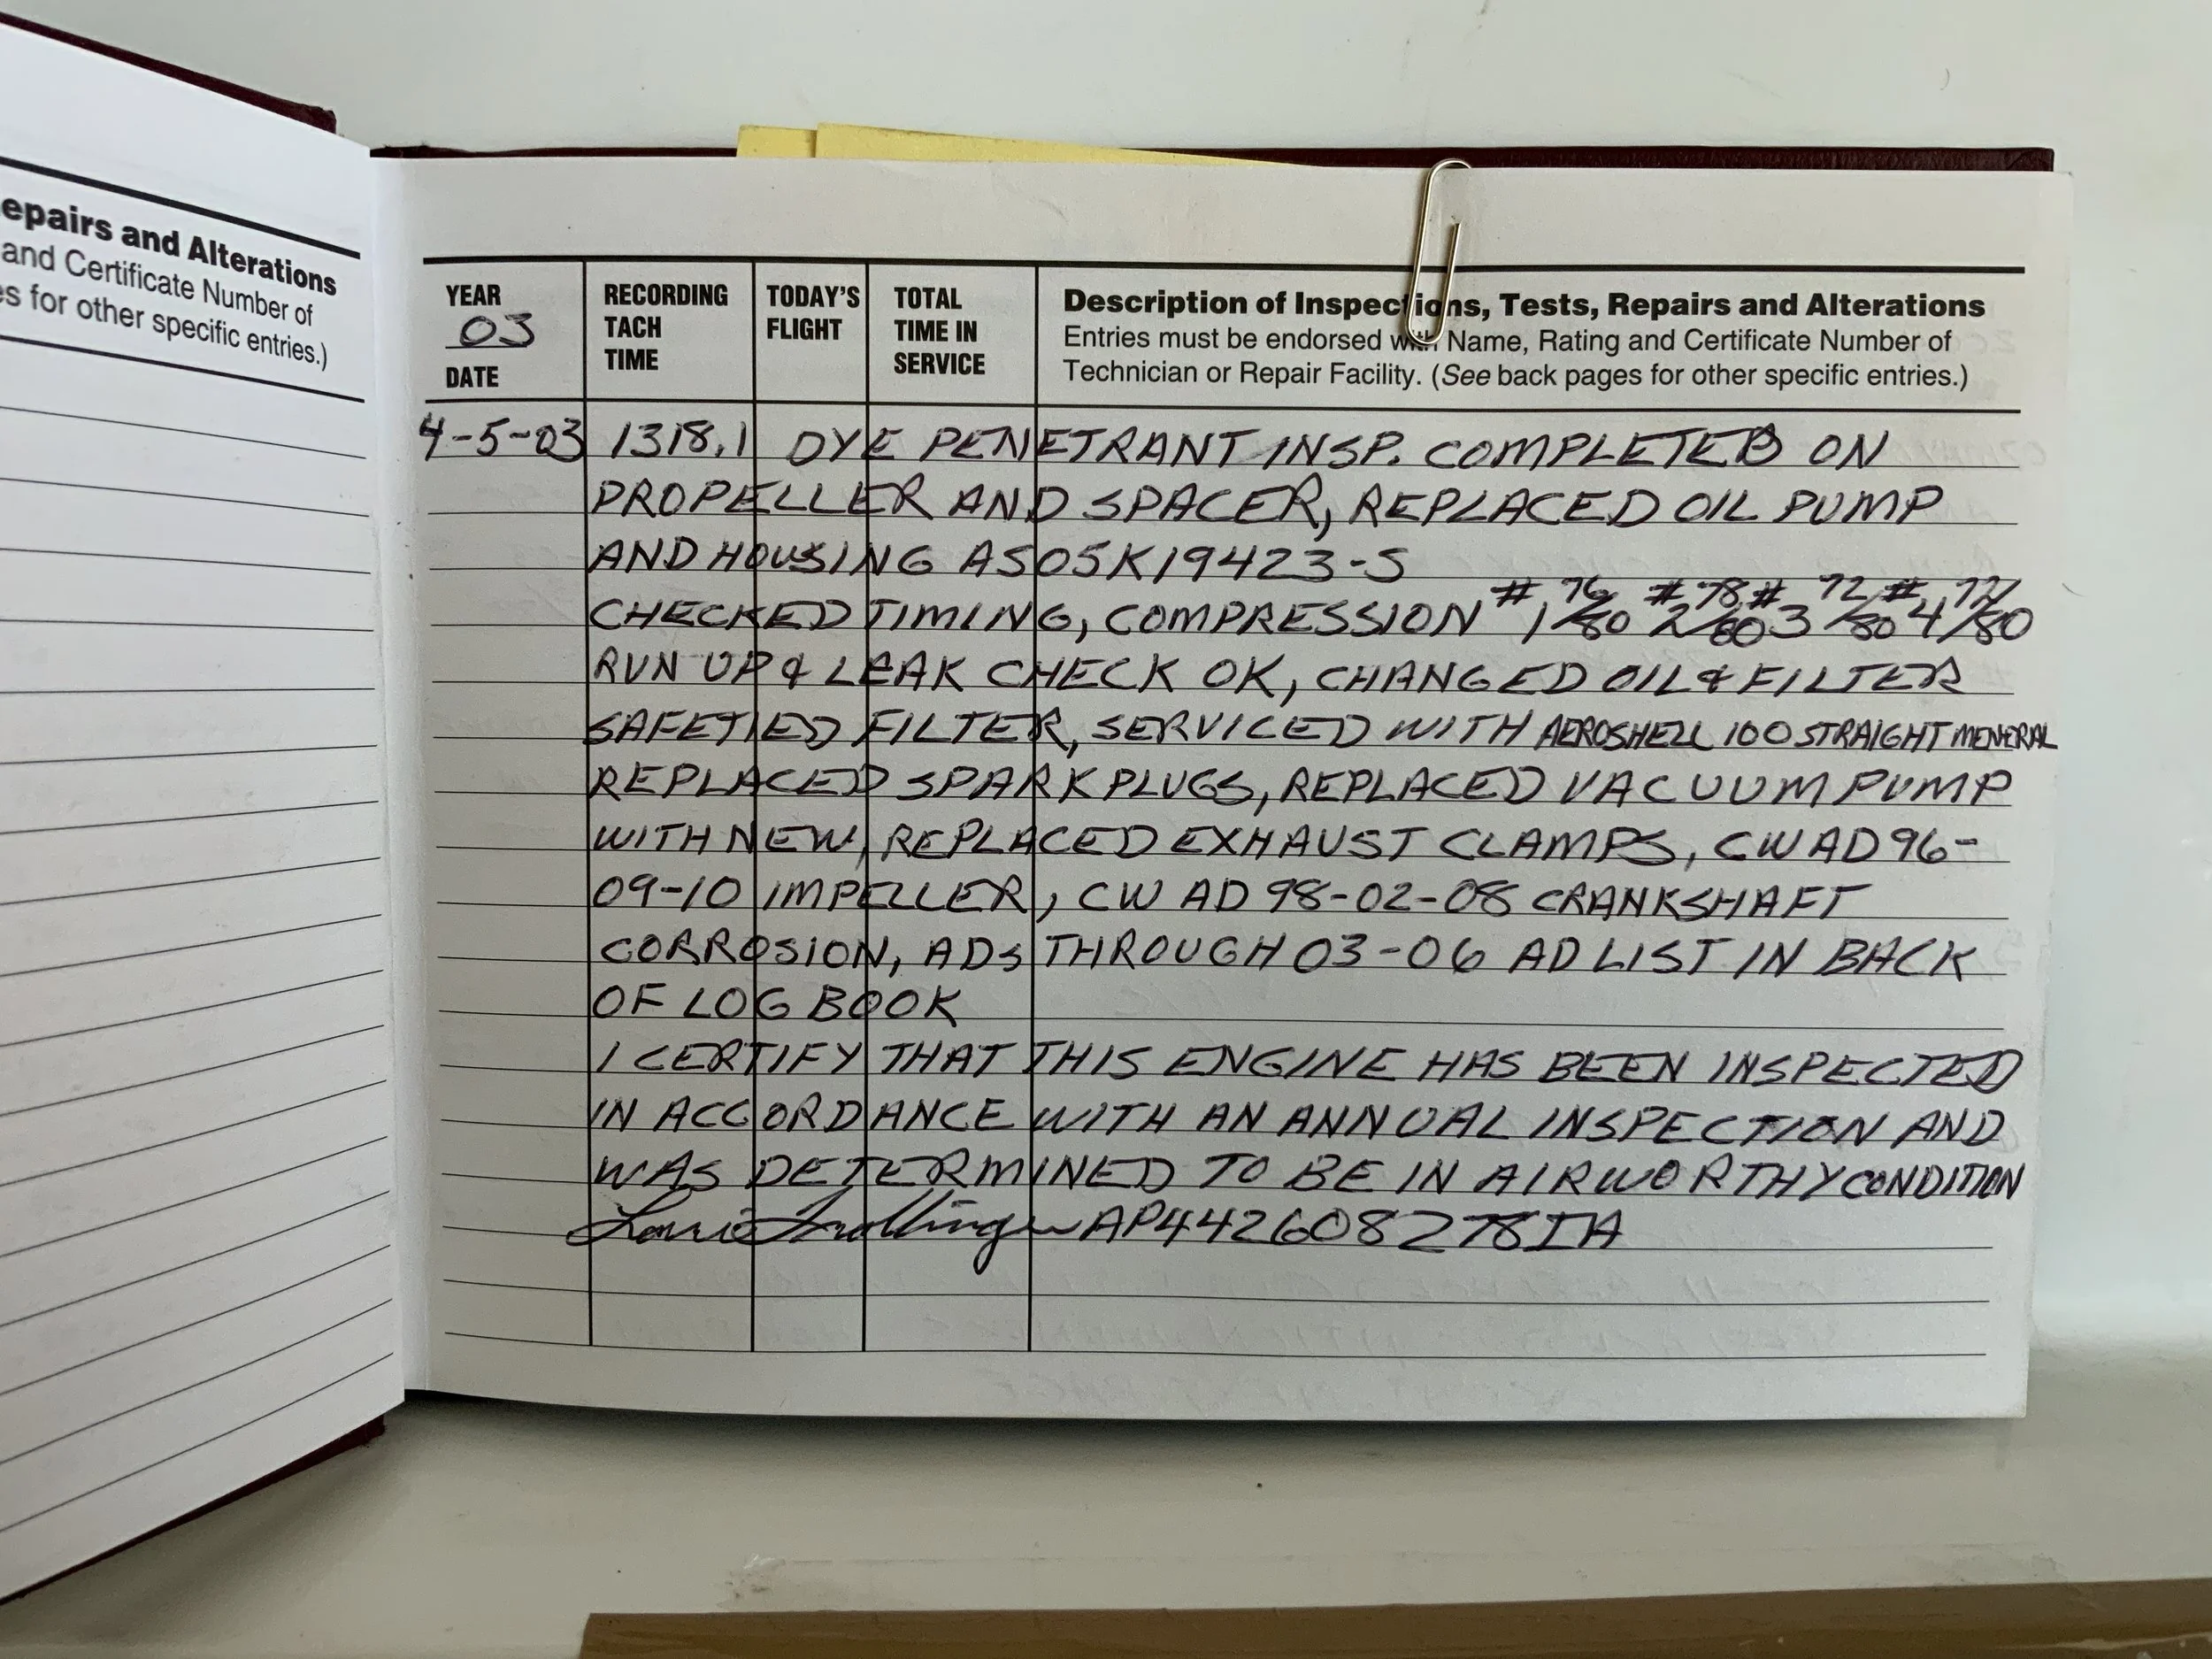 epairs and Alterations
and Certificate Number of
es for other specific entries.)
YEAR
03
DATE
RECORDING
TACH
TIME
TODAY'S
FLIGHT
TOTAL
TIME IN
SERVICE
Description of Inspections, Tests, Repairs and Alterations
Entries must be endorsed with Name, Rating and Certificate Number of
Technician or Repair Facility. (See back pages for other specific entries.)
4-5-03 1318.1 DYE PENETRANT INSP. COMPLETED ON
PROPELLER AND SPACER, REPLACED OIL PUMP
AND HOUSING AS05K19423-S
CHECKED TIMING, COMPRESSION #1 76/80 #2 78/80 #3 72/80 #4 72/80
RUN UP & LEAK CHECK OK, CHANGED OIL & FILTER
SAFETIED FILTER, SERVICED WITH AEROSHELL 100 STRAIGHT MENERAL
REPLACED SPARK PLUGS, REPLACED VACUUM PUMP
WITH NEW, REPLACED EXHAUST CLAMPS, CW AD 96-
09-10 IMPELLER, CW AD 98-02-08 CRANKSHAFT
CORROSION, ADs THROUGH 03-06 AD LIST IN BACK
OF LOG BOOK
I CERTIFY THAT THIS ENGINE HAS BEEN INSPECTED
IN ACCORDANCE WITH AN ANNUAL INSPECTION AND
WAS DETERMINED TO BE IN AIRWORTHY CONDITION
AP442608278IA